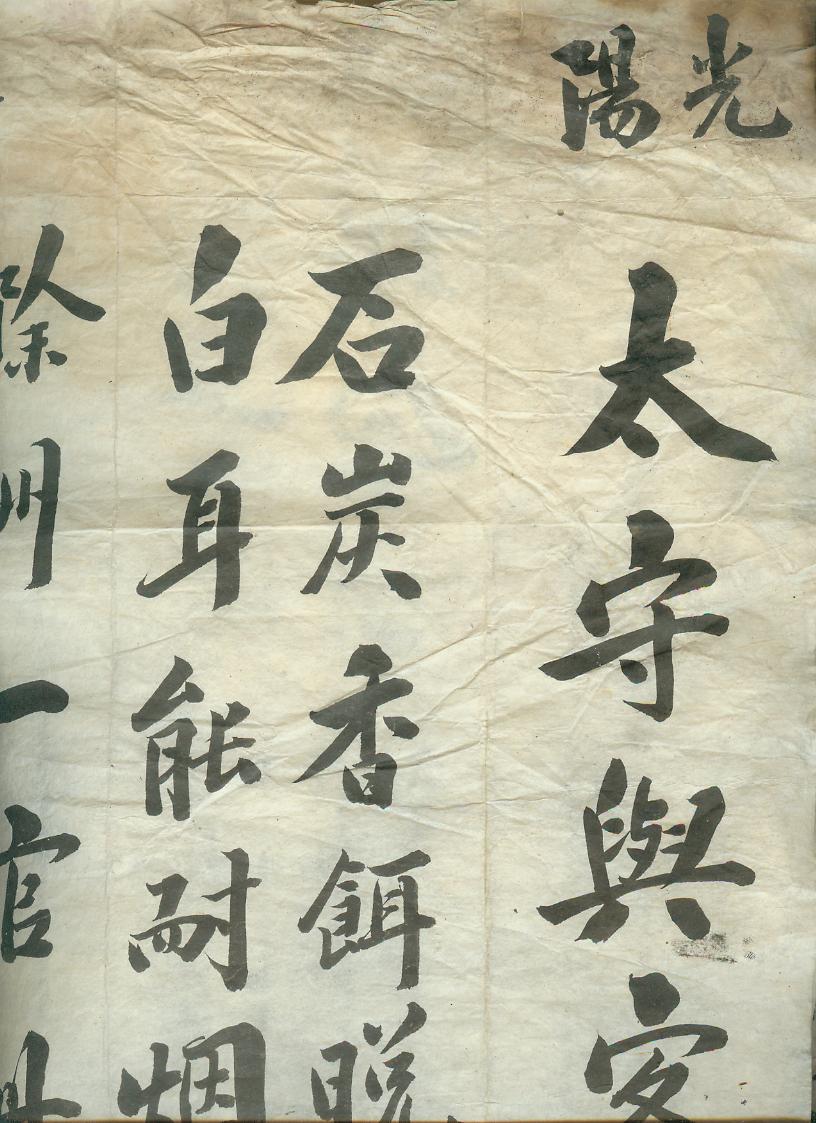 光陽
太守與客
石炭香餌
白耳能耐烟
州一官